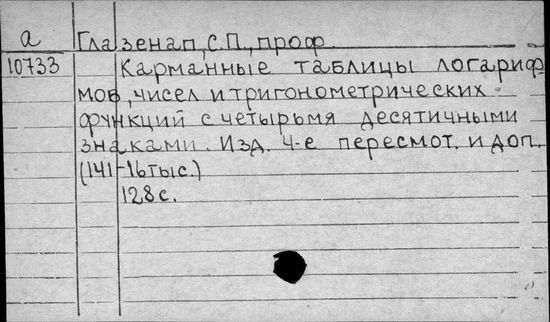 а Глазенап, С.П., проф.
10733 Карманные таблицы логариф-
мов, чисел и тригонометрических
функций с четырьмя десятичными
знаками. Изд. 4-е пересмот. и доп.
(141-16тыс.)
128с.